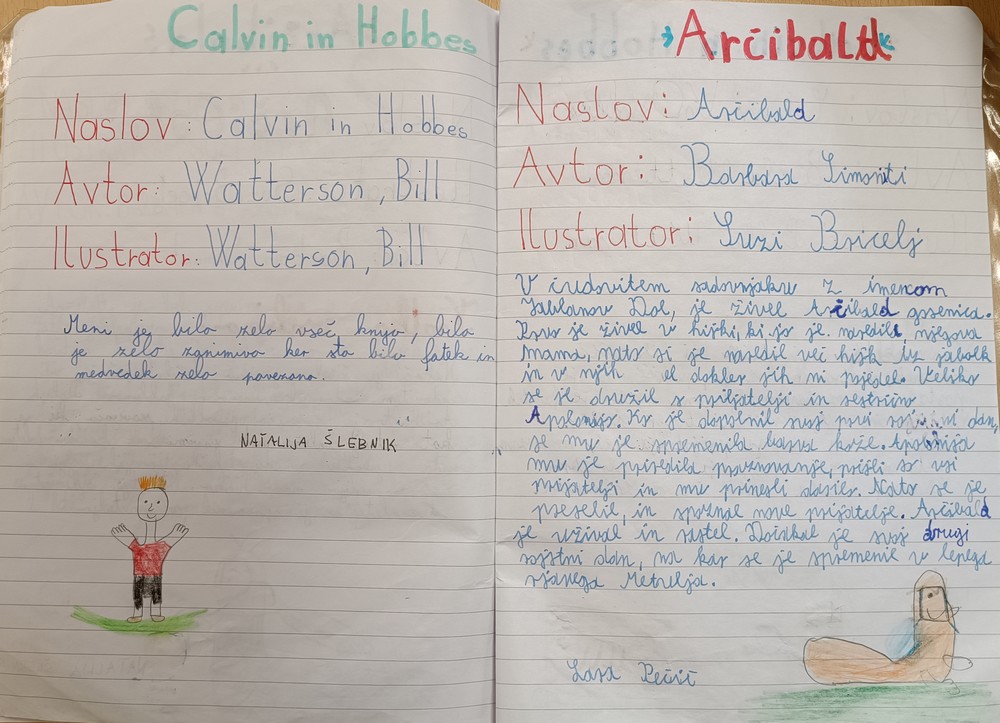 Calvin in Hobbes
Naslov: Calvin in Hobbes
Avtor: Watterson, Bill
Ilustrator: Watterson, Bill
Meni je bila zelo všeč knjiga, bila
je zelo zanimiva ker sta bila fatek in
medvedek zelo povezana.
NATALIJA ŠLEBNIK
Arčibald
Naslov: Arčibald
Avtor: Barbara Simoniti
Ilustrator: Suzi Bricelj
V čudovitem sadovnjaku z imenom
Jablanov Dol, je živel Arčibald gosenica.
Prvo je živel v hiški, ki jo je naredila njegova
mama, nato si je naredil več hišk iz jabolk
in v njih dokler jih ni pojedel. Veliko
se je družil s prijatelji in sestrično
Apolonijo. Ko je dopolnil svoj prvi rojstni dan,
se mu je spremenila barva kože. Apolonija
mu je priredila praznovanje, prišli so vsi
prijatelji in mu prinesli darila. Nato se je
preselil, in spoznal nove prijatelje. Arčibald
je užival in rastel. Dočakal je svoj drugi
rojstni dan, na kar se je spremenil v lepega
rjavega Metulja.
Lara Pečič